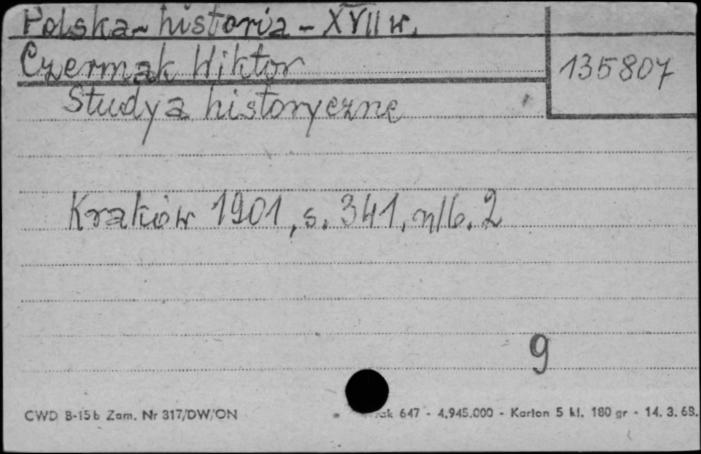 Polska - historia - XVII w.
Czermak Wiktor
135807
Studya historyczne
Kraków 1901, s. 341, nlb. 2
9
CWD B-15b Zam. Nr 317/DW/ON
647 - 4.945.000 - Karton 5 kl. 180 gr - 14. 3. 68.